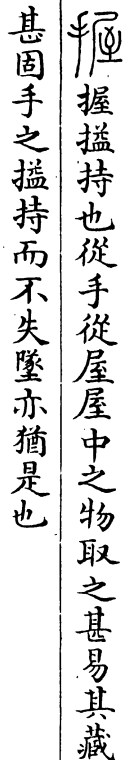 握握搤持也從手從屋屋中之物取之甚易其藏
甚固手之搤持而不失墜亦猶是也